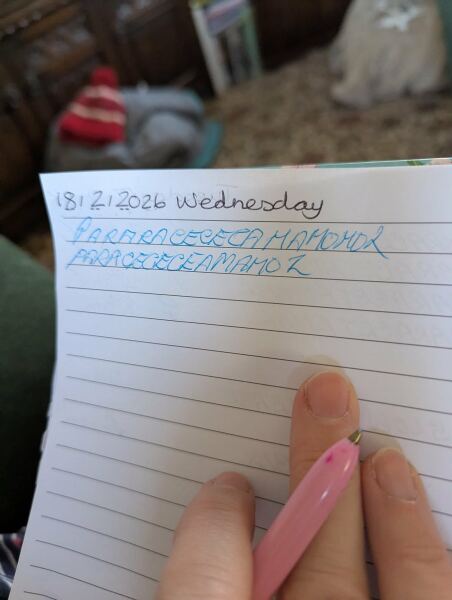 18/2/2026 Wednesday
PARARACECECAMAMOMOL
PARACECECEAMAMOL